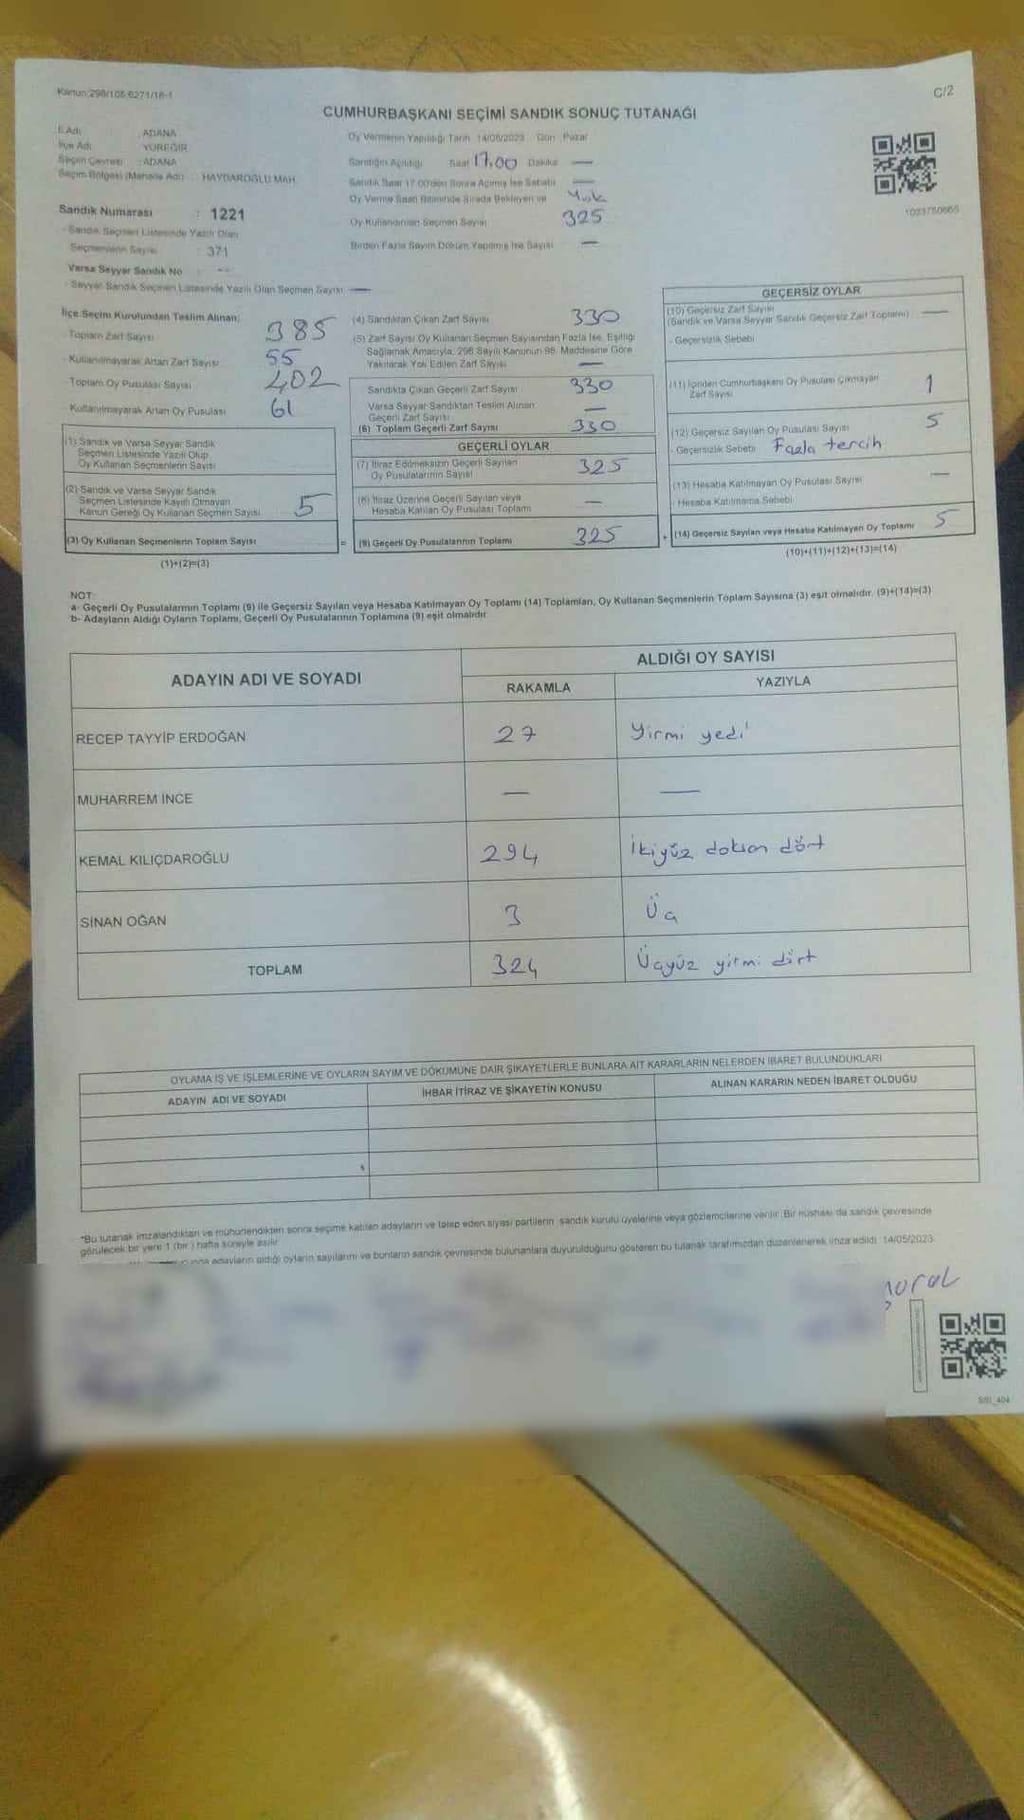 Kanun:298/105.6271/18-1
C/2
CUMHURBAŞKANI SEÇİMİ SANDIK SONUÇ TUTANAĞI
İl Adı : ADANA
İlçe Adı : YÜREĞİR
Seçim Çevresi : ADANA
Seçim Bölgesi (Mahalle Adı) : HAYDAROĞLU MAH.
Sandık Numarası : 1221
Sandık Seçmen Listesinde Yazılı Olan
Seçmenlerin Sayısı : 371
Varsa Seyyar Sandık No : --
Seyyar Sandık Seçmen Listesinde Yazılı Olan Seçmen Sayısı —
Oy Vermenin Yapıldığı Tarih 14/05/2023 Gün : Pazar
Sandığın Açıldığı Saat 17.00 Dakika —
Sandık Saat 17.00'den Sonra Açılmış İse Sebebi —
Oy Verme Saati Bitiminde Sırada Bekleyen ve Yok
Oy Kullandırılan Seçmen Sayısı 325
Birden Fazla Sayım Döküm Yapılmış İse Sayısı —
1023750665
İlçe Seçim Kurulundan Teslim Alınan;
Toplam Zarf Sayısı 385
Kullanılmayarak Artan Zarf Sayısı 55
Toplam Oy Pusulası Sayısı 402
Kullanılmayarak Artan Oy Pusulası 61
(1) Sandık ve Varsa Seyyar Sandık
Seçmen Listesinde Yazılı Olup
Oy Kullanan Seçmenlerin Sayısı
(2) Sandık ve Varsa Seyyar Sandık
Seçmen Listesinde Kayıtlı Olmayan
Kanun Gereği Oy Kullanan Seçmen Sayısı 5
(3) Oy Kullanan Seçmenlerin Toplam Sayısı
=
(1)+(2)=(3)
(4) Sandıktan Çıkan Zarf Sayısı 330
(5) Zarf Sayısı Oy Kullanan Seçmen Sayısından Fazla İse, Eşitliği
Sağlamak Amacıyla, 298 Sayılı Kanunun 98. Maddesine Göre
Yakılarak Yok Edilen Zarf Sayısı —
Sandıkta Çıkan Geçerli Zarf Sayısı 330
Varsa Seyyar Sandıktan Teslim Alınan
Geçerli Zarf Sayısı —
(6) Toplam Geçerli Zarf Sayısı 330
GEÇERLİ OYLAR
(7) İtiraz Edilmeksizin Geçerli Sayılan
Oy Pusulalarının Sayısı 325
(8) İtiraz Üzerine Geçerli Sayılan veya
Hesaba Katılan Oy Pusulası Toplamı —
(9) Geçerli Oy Pusulalarının Toplamı 325
+
GEÇERSİZ OYLAR
(10) Geçersiz Zarf Sayısı
(Sandık ve Varsa Seyyar Sandık Geçersiz Zarf Toplamı) —
Geçersizlik Sebebi
(11) İçinden Cumhurbaşkanı Oy Pusulası Çıkmayan
Zarf Sayısı 1
(12) Geçersiz Sayılan Oy Pusulası Sayısı 5
Geçersizlik Sebebi Fazla tercih
(13) Hesaba Katılmayan Oy Pusulası Sayısı —
Hesaba Katılmama Sebebi
(14) Geçersiz Sayılan veya Hesaba Katılmayan Oy Toplamı 5
(10)+(11)+(12)+(13)=(14)
NOT:
a- Geçerli Oy Pusulalarının Toplamı (9) ile Geçersiz Sayılan veya Hesaba Katılmayan Oy Toplamı (14) Toplamları, Oy Kullanan Seçmenlerin Toplam Sayısına (3) eşit olmalıdır. (9)+(14)=(3)
b- Adayların Aldığı Oyların Toplamı, Geçerli Oy Pusulalarının Toplamına (9) eşit olmalıdır.
ADAYIN ADI VE SOYADI
ALDIĞI OY SAYISI
RAKAMLA
YAZIYLA
RECEP TAYYİP ERDOĞAN 27 Yirmi yedi
MUHARREM İNCE — —
KEMAL KILIÇDAROĞLU 294 İkiyüz doksan dört
SİNAN OĞAN 3 Üç
TOPLAM 324 Üçyüz yirmi dört
OYLAMA İŞ VE İŞLEMLERİNE VE OYLARIN SAYIM VE DÖKÜMÜNE DAİR ŞİKAYETLERLE BUNLARA AİT KARARLARIN NELERDEN İBARET BULUNDUKLARI
ADAYIN ADI VE SOYADI
İHBAR İTİRAZ VE ŞİKAYETİN KONUSU
ALINAN KARARIN NEDEN İBARET OLDUĞU
*Bu tutanak imzalandıktan ve mühürlendikten sonra seçime katılan adayların ve talep eden siyasi partilerin sandık kurulu üyelerine veya gözlemcilerine verilir. Bir nüshası da sandık çevresinde
görülecek bir yere 1 (bir) hafta süreyle asılır.
adayların aldığı oyların sayılarını ve bunların sandık çevresinde bulunanlara duyurulduğunu gösteren bu tutanak tarafımızdan düzenlenerek imza edildi. 14/05/2023